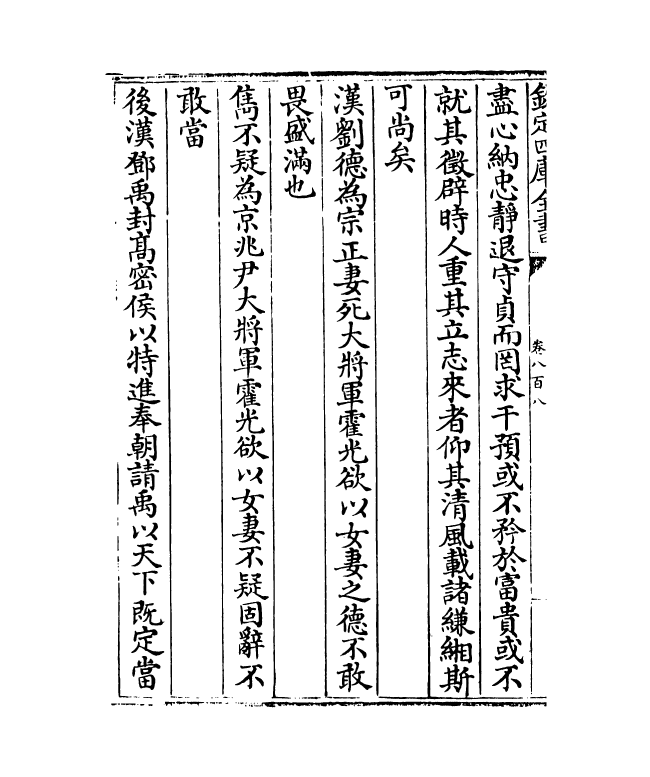 欽定四庫全書
卷八百八
盡心納忠靜退守貞而罔求干預或不矜於富貴或不
就其徵辟時人重其立志來者仰其清風載諸縑緗斯
可尚矣
漢劉德為宗正妻死大將軍霍光欲以女妻之德不敢
畏盛滿也
雋不疑為京兆尹大將軍霍光欲以女妻不疑固辭不
敢當
後漢鄧禹封髙密侯以特進奉朝請禹以天下既定當